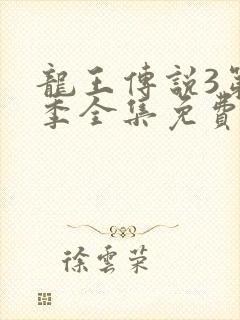 龍王傳說3第
季全集免費
徐雲榮